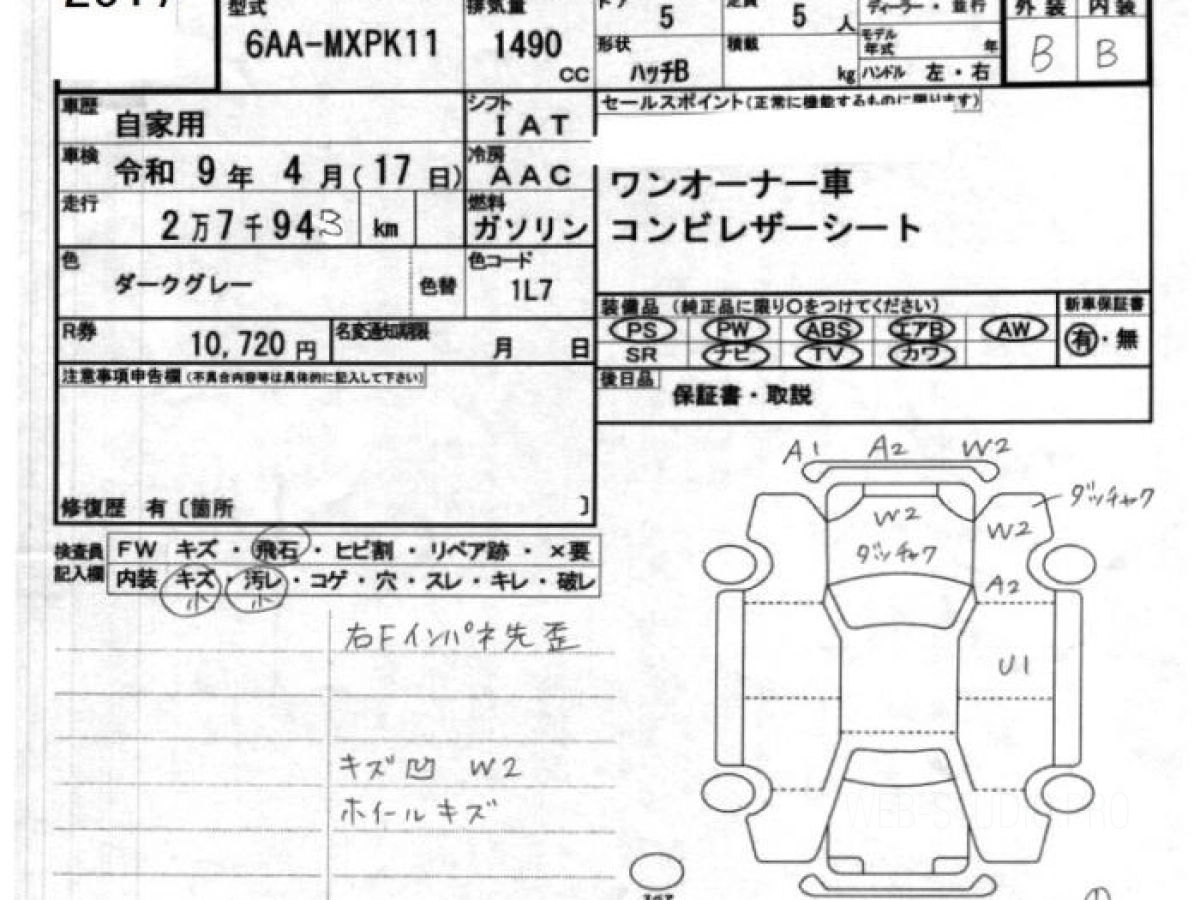 型式
6AA-MXPK11
排気量
1490
CC
5
5 人
ディーラー・並行
外装 内装
B B
形状
ハッチB
積載
kg
モデル年式 年
ハンドル 左・右
車歴
自家用
シフト
IAT
セールスポイント(正常に機能するものに限ります)
車検
令和 9年 4月(17日)
冷房
AAC
ワンオーナー車
走行
2万7千943 km
燃料
ガソリン
コンビレザーシート
色
ダークグレー
色替
色コード
1L7
装備品(純正品に限り○をつけてください)
新車保証書
PS PW ABS エアB AW
有・無
SR ナビ TV カワ
R券
10,720円
名変通知期限
月 日
注意事項申告欄(不具合内容等は具体的に記入して下さい)
後日品
保証書・取説
修復歴 有〔箇所 〕
検査員記入欄
FW キズ・飛石・ヒビ割・リペア跡・×要
内装 キズ・汚レ・コゲ・穴・スレ・キレ・破レ
小 小
右Fインパネ先歪
キズ凹 W2
ホイールキズ
A1 A2 W2
ダッチャク
W2
W2
ダッチャク
A2
U1
WEB-STUDIO.PRO